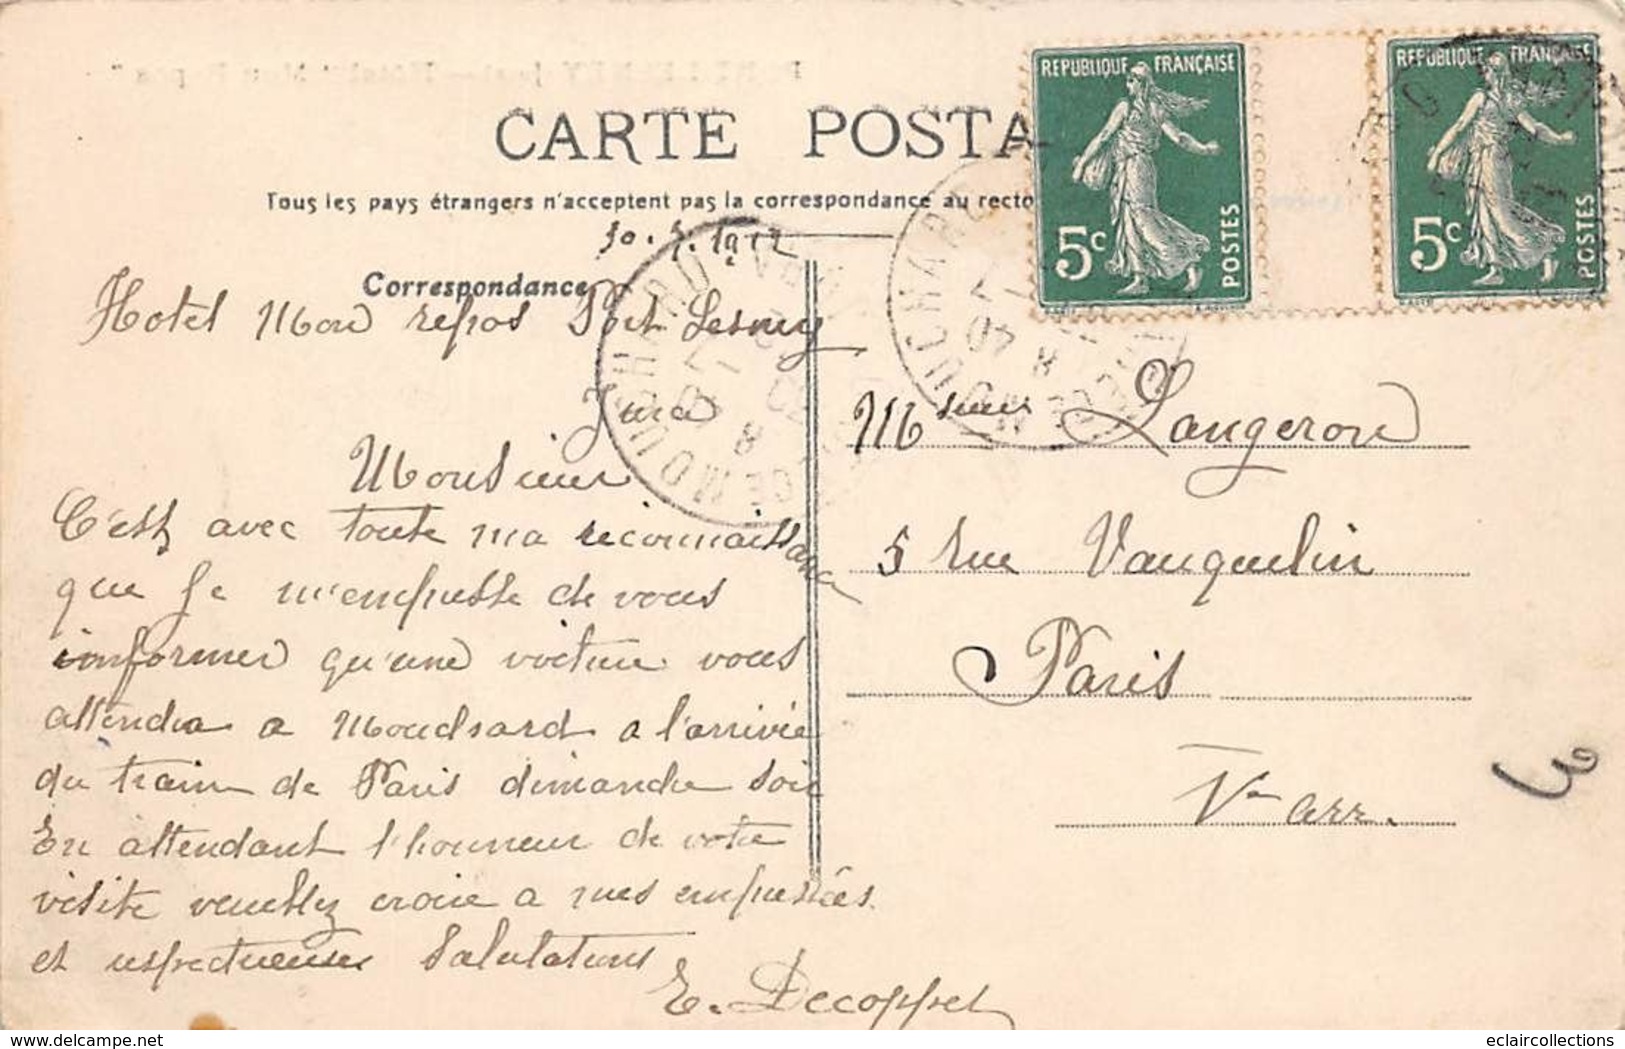 CARTE POSTA
Tous les pays étrangers n'acceptent pas la correspondance au recto
1912
Correspondance
Hotel Mon repos Port Lesney
Jura
Monsieur
C'est avec toute ma reconnaissance
que je m'empresse de vous
informer qu'une voiture vous
attendra a Mouchard a l'arrivée
du train de Paris dimanche soir
En attendant l'honneur de votre
visite veuillez croire a mes empressées
et respectueuses salutations
E. Decoppet
REPUBLIQUE FRANÇAISE
5c
POSTES
REPUBLIQUE FRANÇAISE
5c
POSTES
MOUCHARD
MOUCHARD
Monsieur Langeron
5 rue Vauquelin
Paris
Ve arr.
eclaircollections